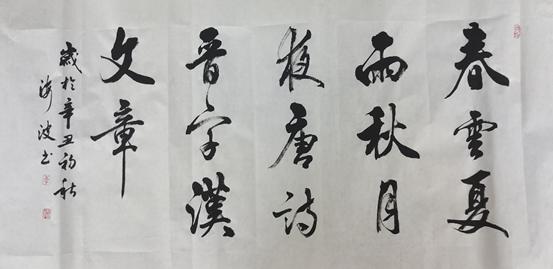 春雲夏
雨秋月
夜唐詩
晋字漢
文章
歲於辛丑初秋
海波书